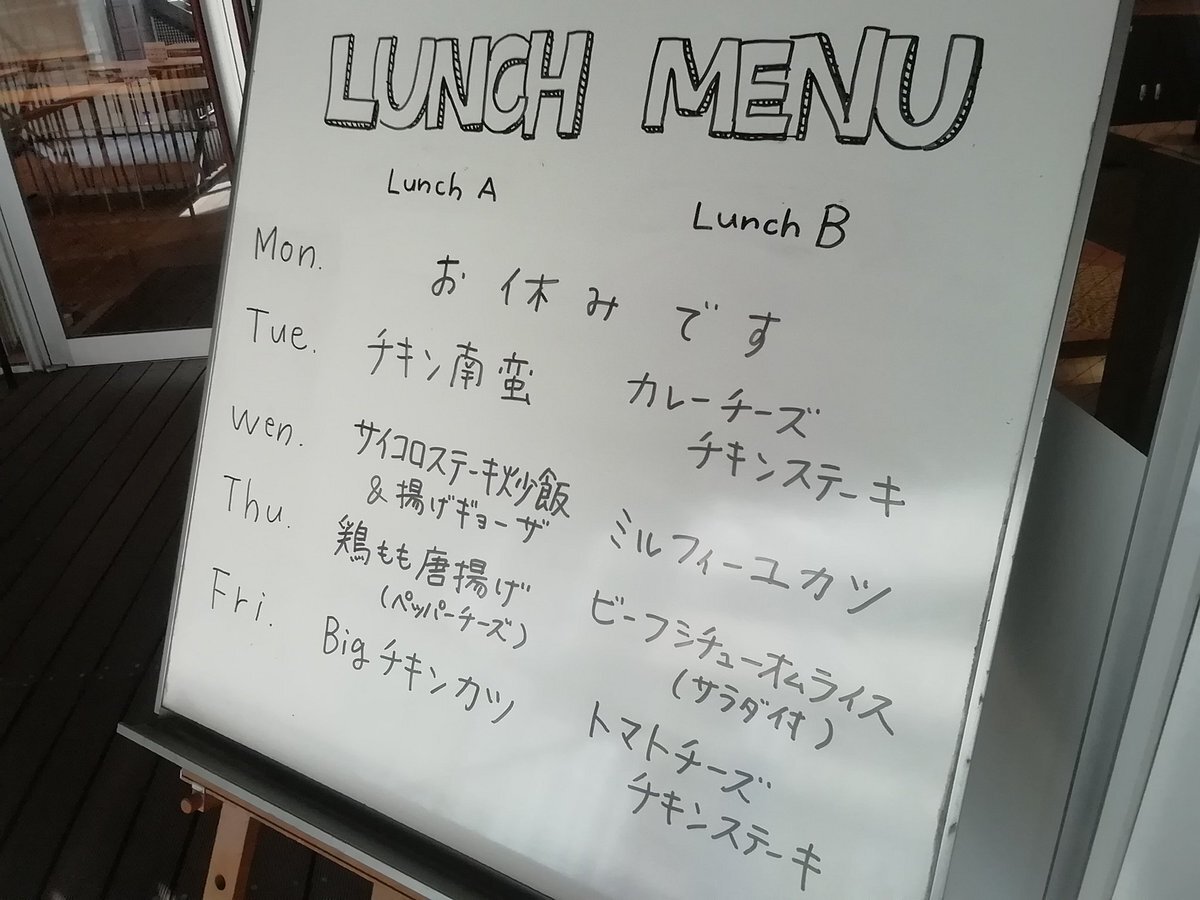 LUNCH MENU
Lunch A Lunch B
Mon. お休みです
Tue. チキン南蛮 カレーチーズ
チキンステーキ
Wen. サイコロステーキ炒飯
&揚げギョーザ ミルフィーユカツ
Thu. 鶏もも唐揚げ ビーフシチューオムライス
(ペッパーチーズ) (サラダ付)
Fri. Bigチキンカツ トマトチーズ
チキンステーキ